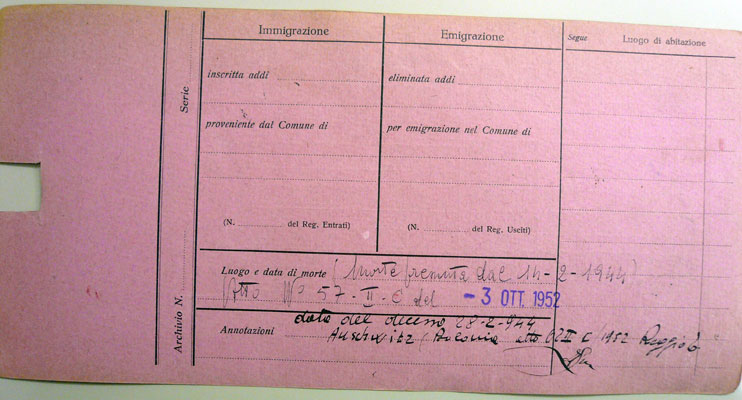 Immigrazione
Emigrazione
Segue Luogo di abitazione
Serie
inscritta addì
eliminata addì
proveniente dal Comune di
per emigrazione nel Comune di
(N. del Reg. Entrati)
(N. del Reg. Usciti)
Luogo e data di morte (Morte presunta dal 14-2-1944)
Atto N° 57-II-C del - 3 OTT. 1952
data del decesso 28-2-944
Annotazioni Auschwitz (Polonia atto II C 1952 Reggio
Archivio N.